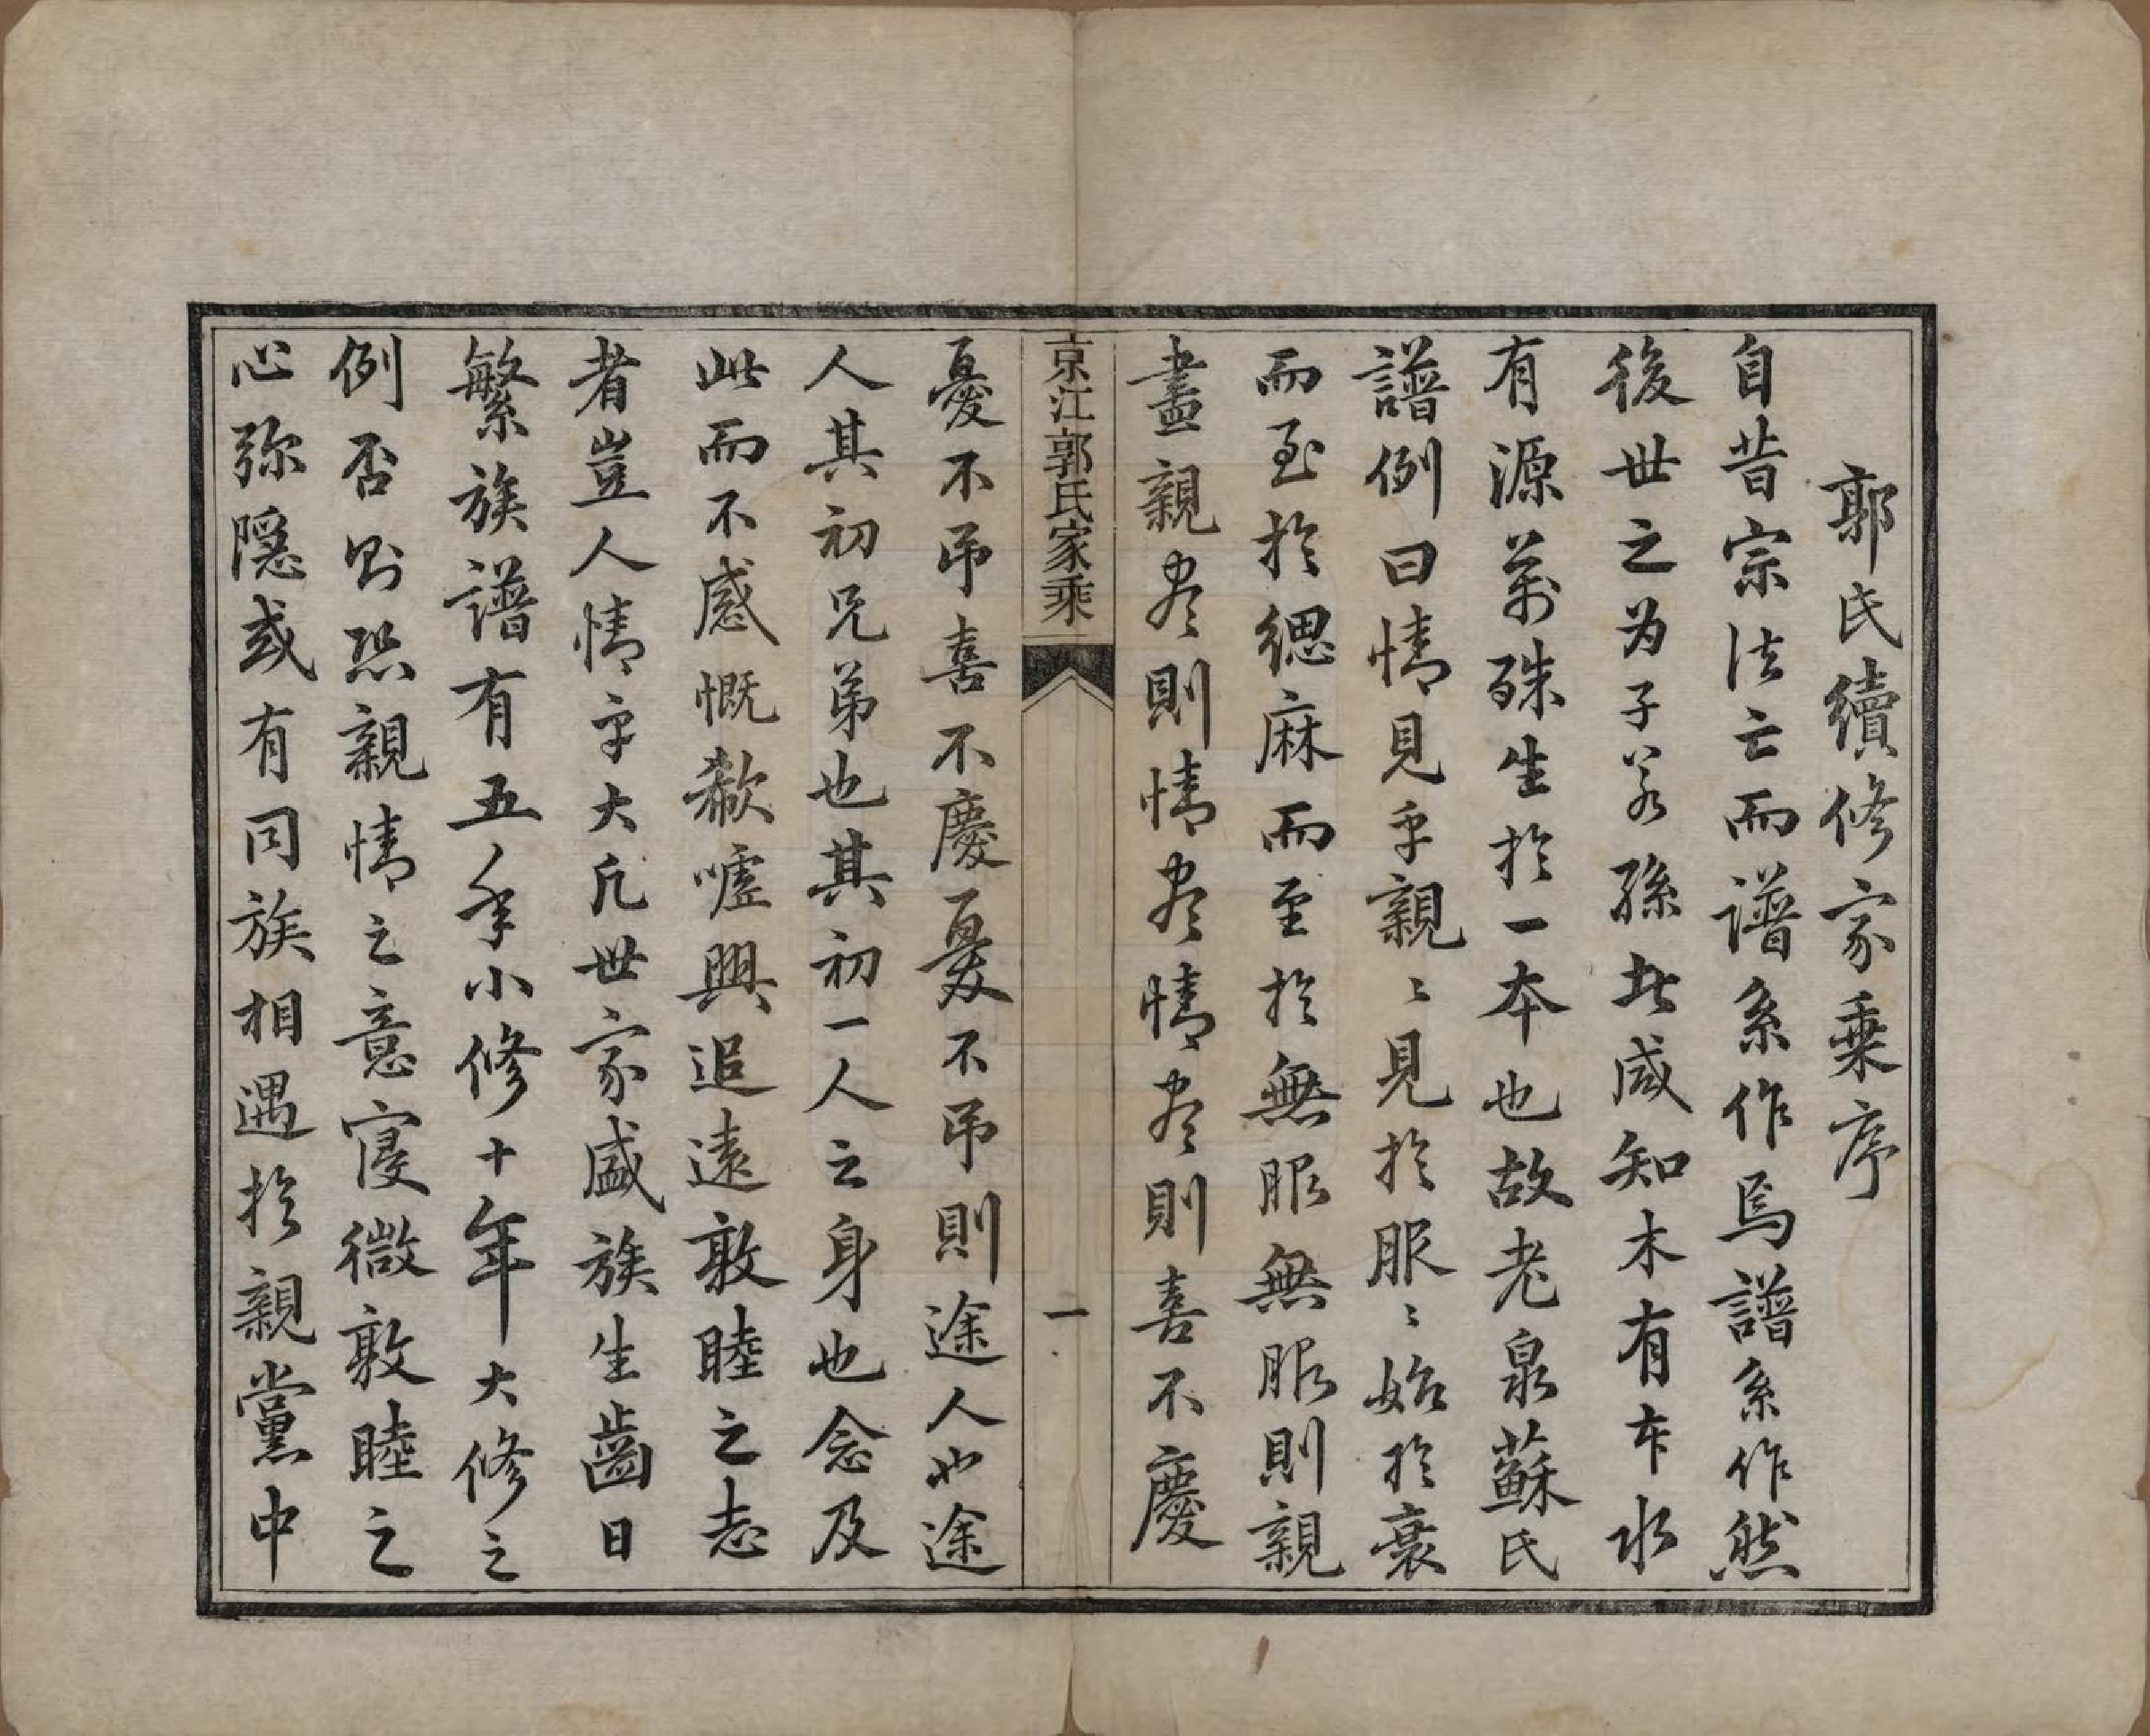 郭氏續修家乘序
自昔宗法亡而譜系作焉譜系作然
後世之为子若孫者咸知木有本水
有源萬殊生於一本也故老泉蘇氏
譜例曰情見乎親〻見於服〻始於衰
而至於緦麻而至於無服無服則親
盡親盡則情盡情盡則喜不慶
京江郭氏家乘
一
憂不弔喜不慶憂不弔則途人也途
人其初兄弟也其初一人之身也念及
此而不感慨欷噓興追遠敦睦之志
者豈人情乎大凡世家盛族生齒日
繁族譜有五年小修十年大修之
例否則恐親情之意寖微敦睦之
心弥隱或有同族相遇於親黨中